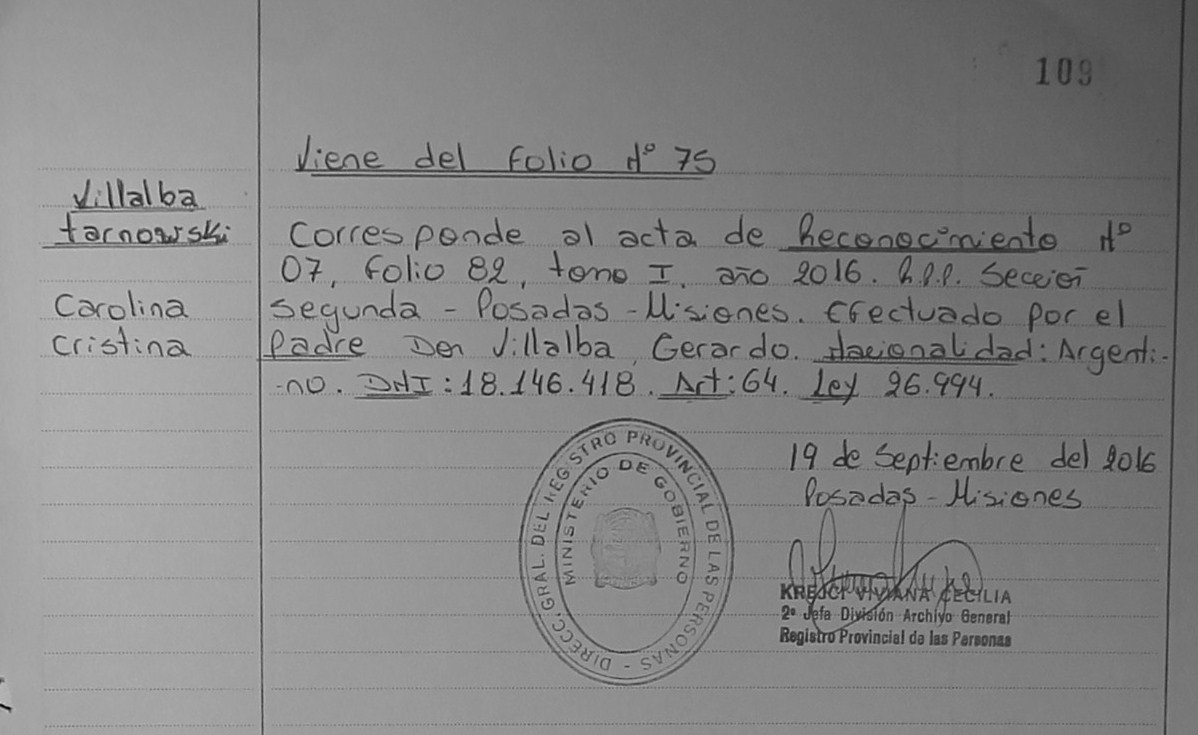 109
Viene del Folio Nº 75
Villalba
tarnowski
Carolina
Cristina
Corresponde al acta de Reconocimiento Nº
07, Folio 82, tomo I, año 2016. R.P.P. Sección
Segunda - Posadas - Misiones. Efectuado por el
Padre Don Villalba, Gerardo. Nacionalidad: Argenti-
-no. DNI: 18.146.418. Art: 64. Ley 26.994.
19 de Septiembre del 2016
Posadas - Misiones
DIRECC. GRAL. DEL REGISTRO PROVINCIAL DE LAS PERSONAS -
MINISTERIO DE GOBIERNO
KREJCI VIVIANA CECILIA
2º Jefa División Archivo General
Registro Provincial de las Personas